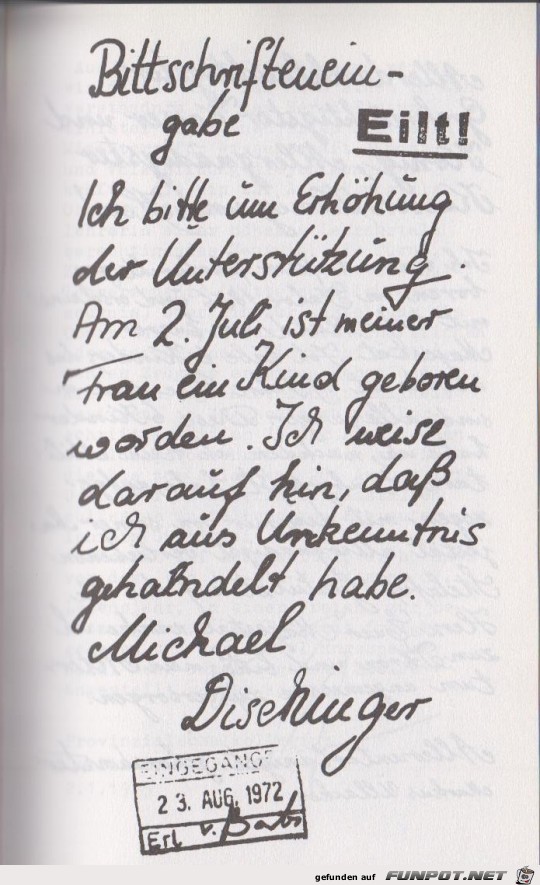 Bittschriftenein-
gabe
Eilt!
Ich bitte um Erhöhung
der Unterstützung.
Am 2. Juli ist meiner
Frau ein Kind geboren
worden. Ich weise
darauf hin, daß
ich aus Unkenntnis
gehandelt habe.
Michael
Dischunger
EINGEGANGEN
23. AUG. 1972
Erl v.
gefunden auf FUNPOT.NET